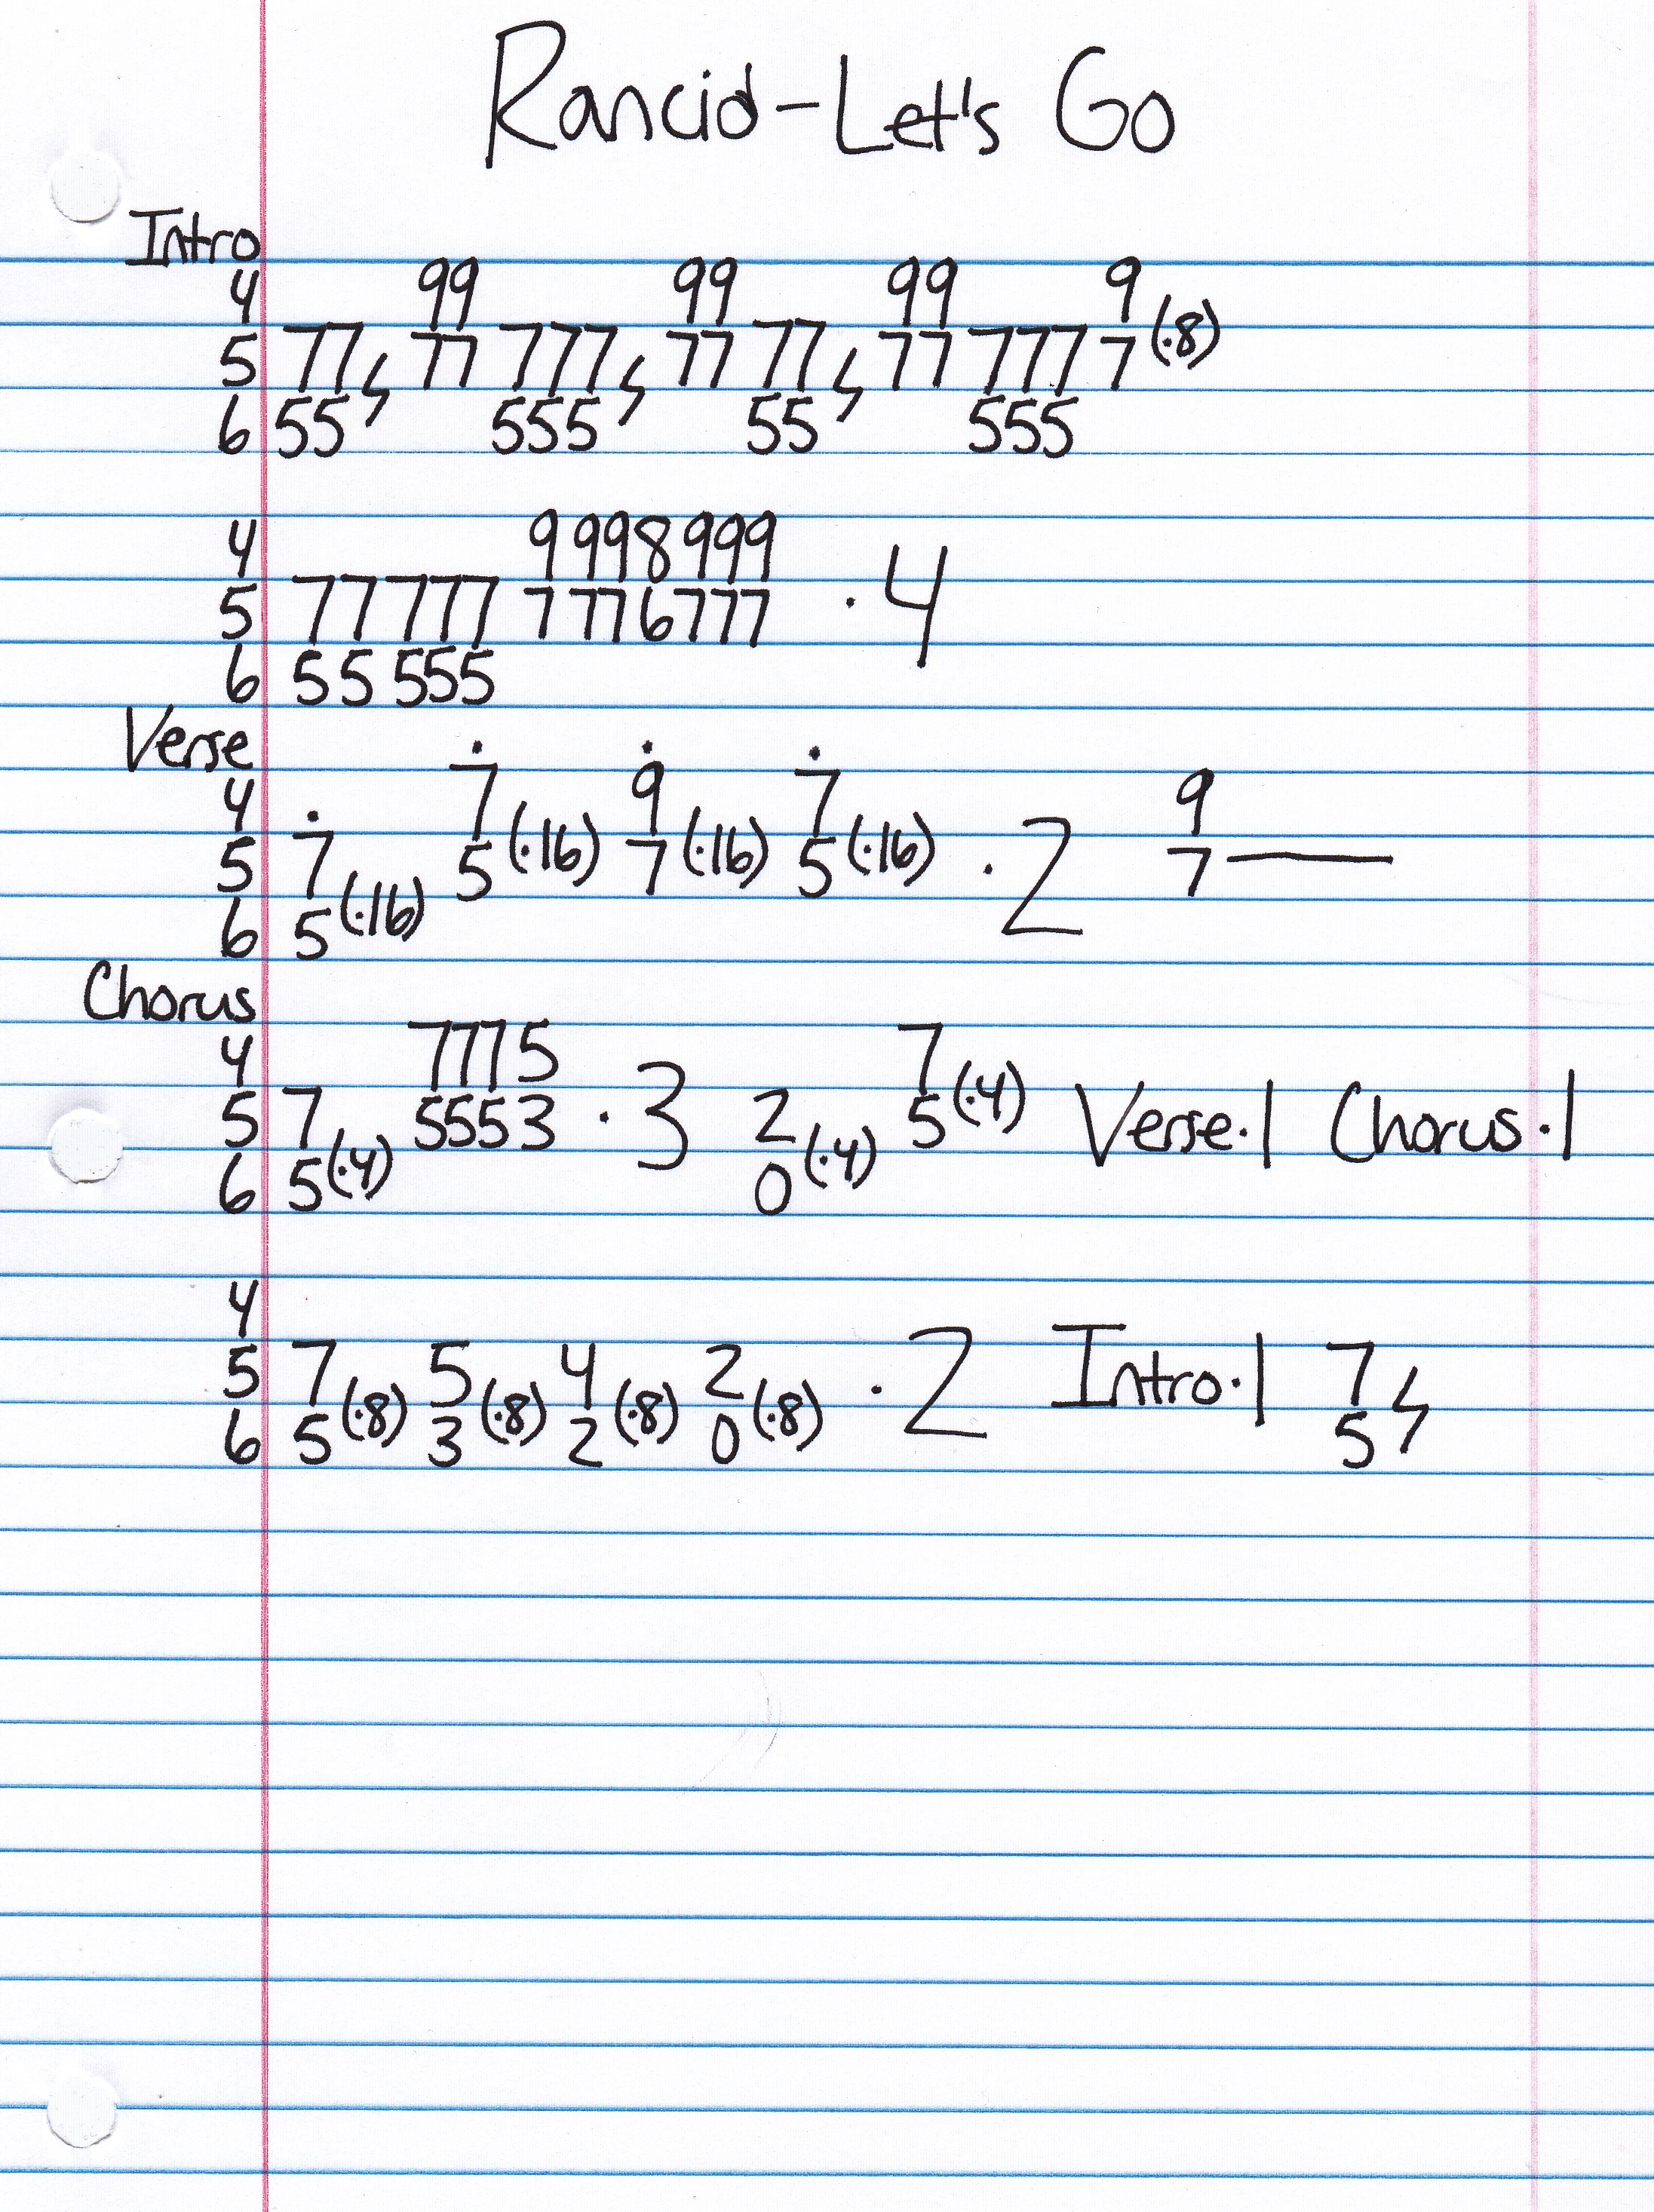 Rancid-Let's Go
Intro
4 99 99 99 9
5 77 ϟ 77 777 ϟ 77 77 ϟ 77 777 7 (·8)
6 55 555 55 555
4 9 9 9 8 9 9 9
5 77 777 7 7 7 6 7 7 7 · 4
6 55 555
Verse
4 7 9 7 9
5 7 5 (·16) 7 (·16) 5 (·16) · 2 7 —
6 5 (·16)
Chorus
4 7775 7
5 7 5553 · 3 2 5 (·4) Verse·1 Chorus·1
6 5 (·4) 0 (·4)
4
5 7 5 4 2 · 2 Intro·1 7 ϟ
6 5 (·8) 3 (·8) 2 (·8) 0 (·8) 5